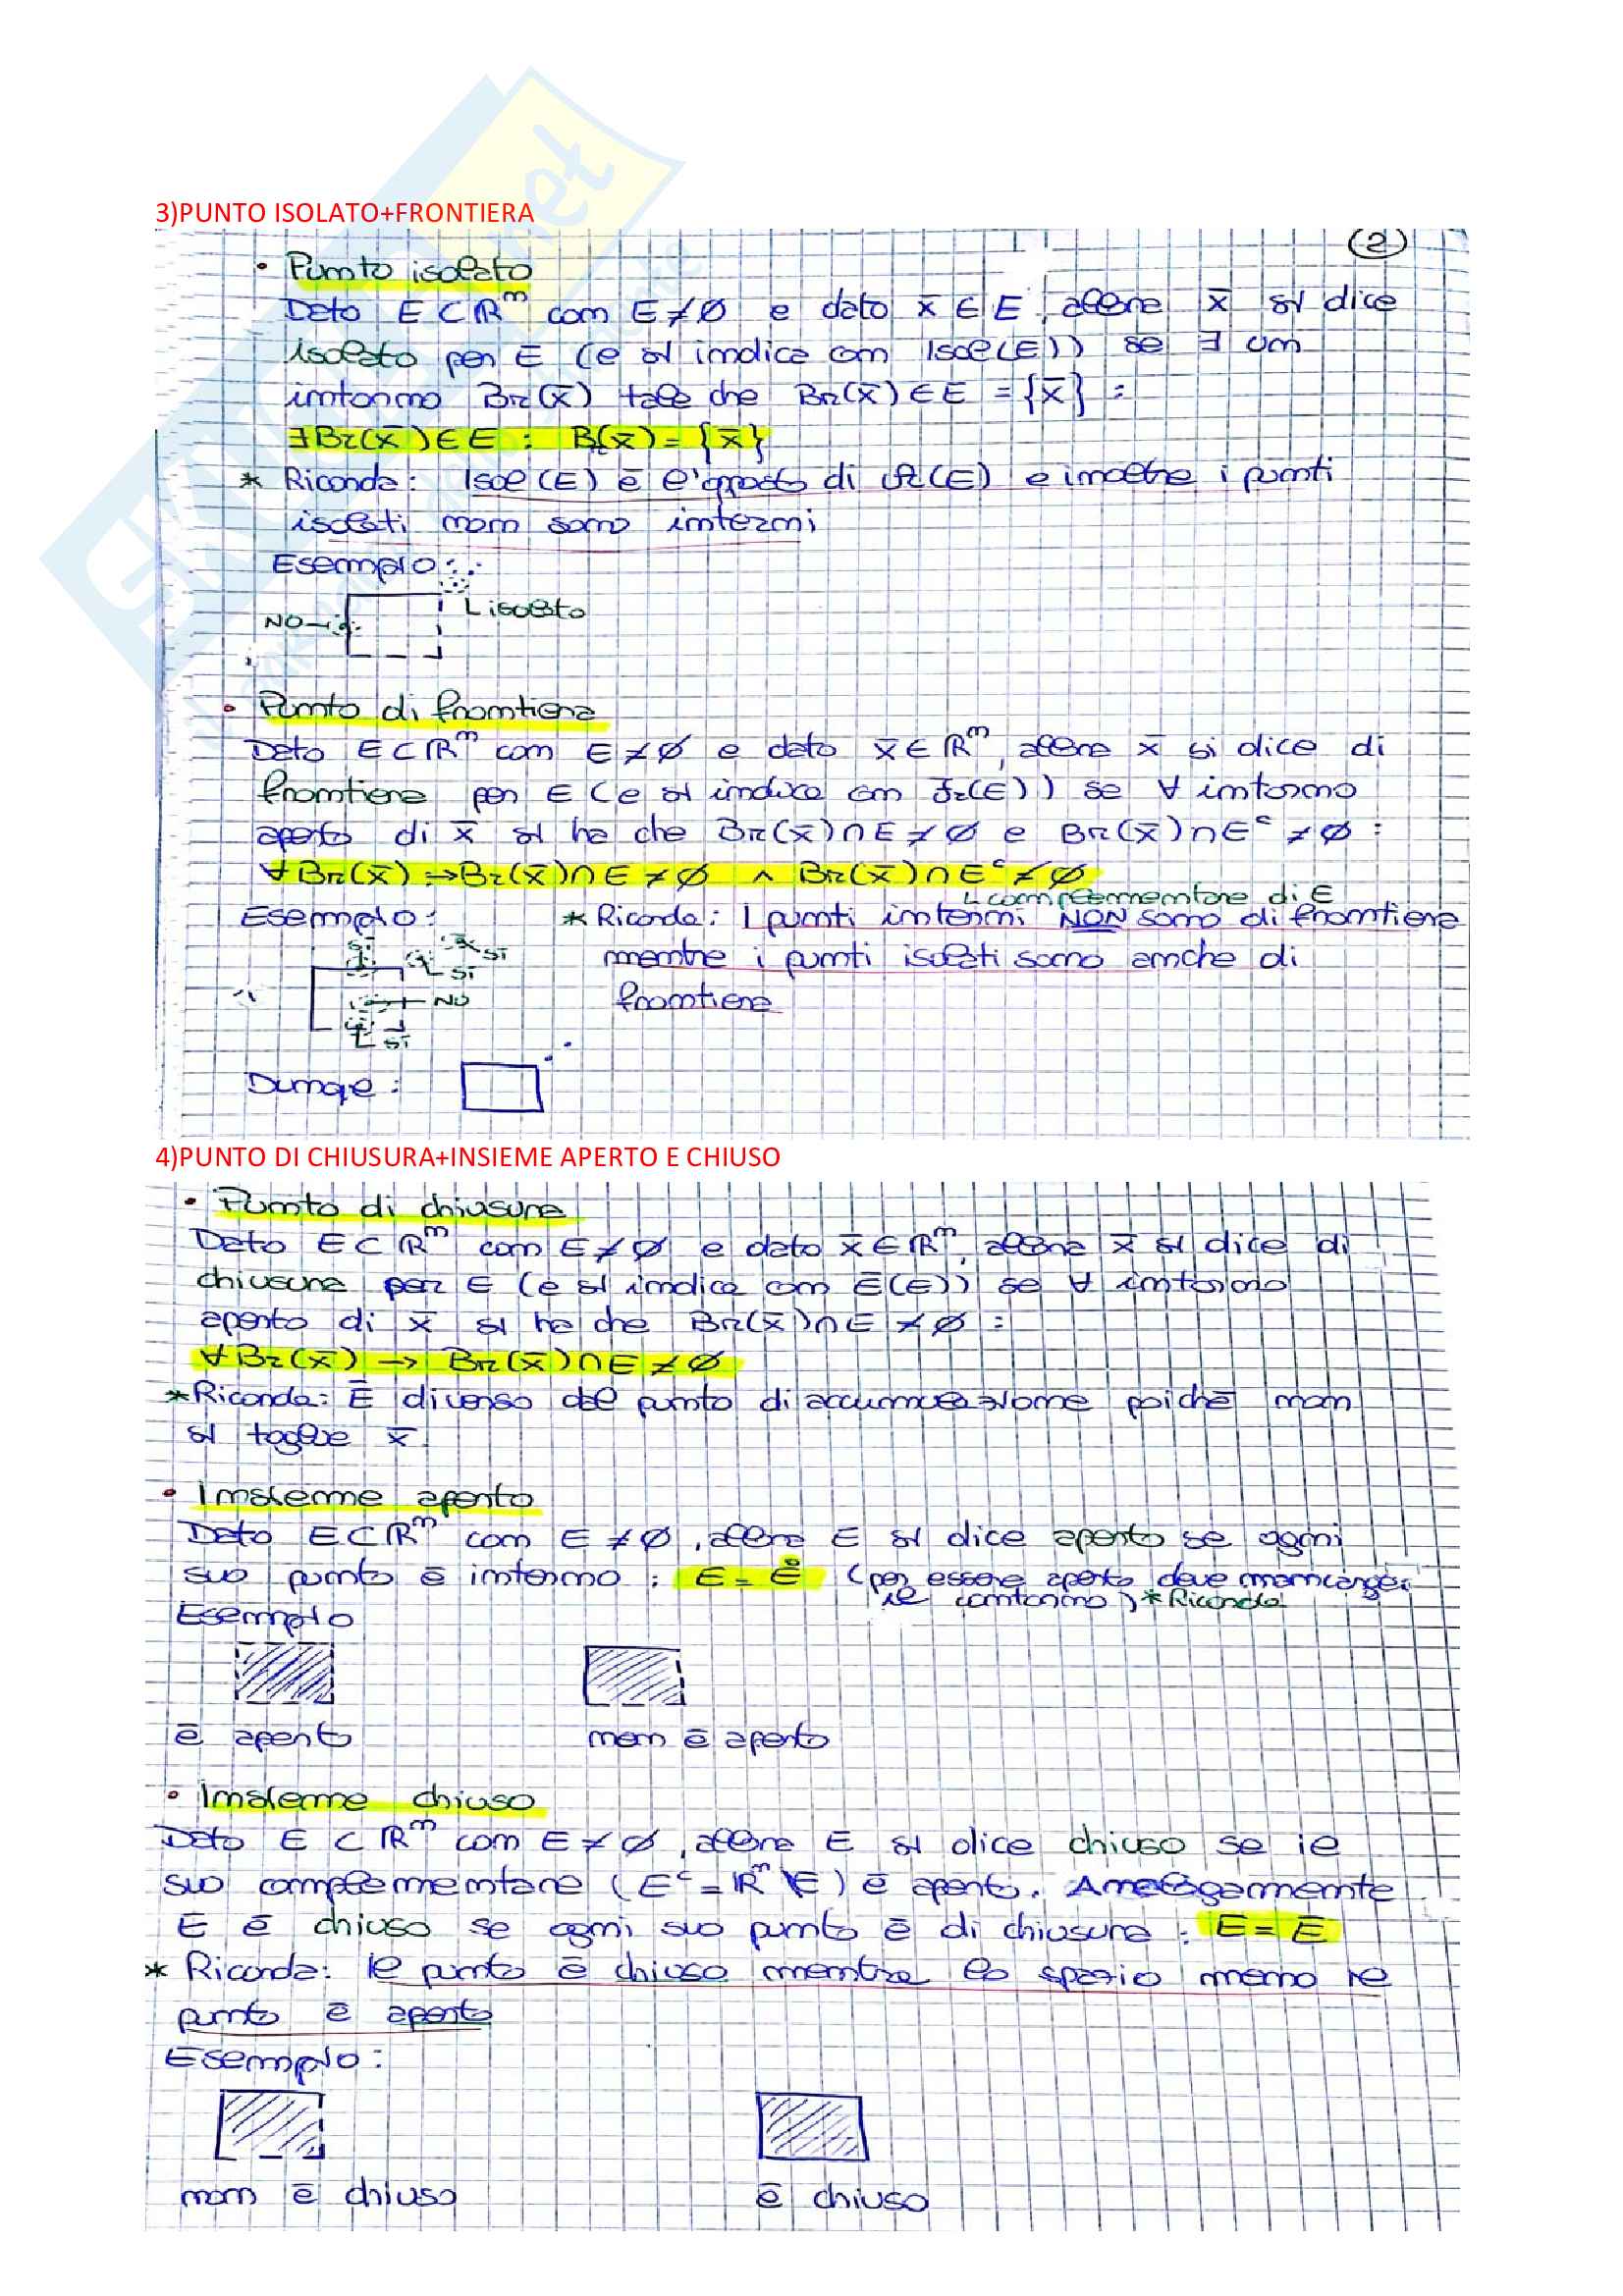 3)PUNTO ISOLATO+FRONTIERA
(2)
• Punto isolato
Dato E ⊂ ℝⁿ con E ≠ ∅ e dato x̄ ∈ E, allora x̄ si dice
isolato per E (e si indica con Isol(E)) se ∃ un
intorno Br(x̄) tale che Br(x̄) ∈ E = {x̄} :
∃ Br(x̄) ∈ E : Br(x̄) = {x̄}
* Ricorda: Isol(E) è l'opposto di 𝒟r(E) e inoltre i punti
isolati non sono interni
Esempio:
isolato
NO
• Punto di frontiera
Dato E ⊂ ℝⁿ con E ≠ ∅ e dato x̄ ∈ ℝⁿ, allora x̄ si dice di
frontiera per E (e si indica con Fr(E)) se ∀ intorno
aperto di x̄ si ha che Br(x̄) ∩ E ≠ ∅ e Br(x̄) ∩ Eᶜ ≠ ∅ :
∀ Br(x̄) → Br(x̄) ∩ E ≠ ∅ ∧ Br(x̄) ∩ Eᶜ ≠ ∅
complementare di E
Esempio: * Ricorda: I punti interni NON sono di frontiera
mentre i punti isolati sono anche di
frontiera
SI
SI
SI
NO
SI
Dunque:
4)PUNTO DI CHIUSURA+INSIEME APERTO E CHIUSO
• Punto di chiusura
Dato E ⊂ ℝⁿ con E ≠ ∅ e dato x̄ ∈ ℝⁿ, allora x̄ si dice di
chiusura per E (e si indica con Ē(E)) se ∀ intorno
aperto di x̄ si ha che Br(x̄) ∩ E ≠ ∅ :
∀ Br(x̄) → Br(x̄) ∩ E ≠ ∅
* Ricorda: Ē diverso dal punto di accumulazione poichè non
si toglie x̄
• Insieme aperto
Dato E ⊂ ℝⁿ con E ≠ ∅, allora E si dice aperto se ogni
suo punto è interno : E = E̊ (per essere aperto deve mancargli
il contorno) * Ricorda
Esempio
è aperto non è aperto
• Insieme chiuso
Dato E ⊂ ℝⁿ con E ≠ ∅, allora E si dice chiuso se il
suo complementare (Eᶜ = ℝⁿ \ E) è aperto. Analogamente
E è chiuso se ogni suo punto è di chiusura : E = Ē
* Ricorda: il punto è chiuso mentre lo spazio meno il
punto è aperto
Esempio:
non è chiuso è chiuso